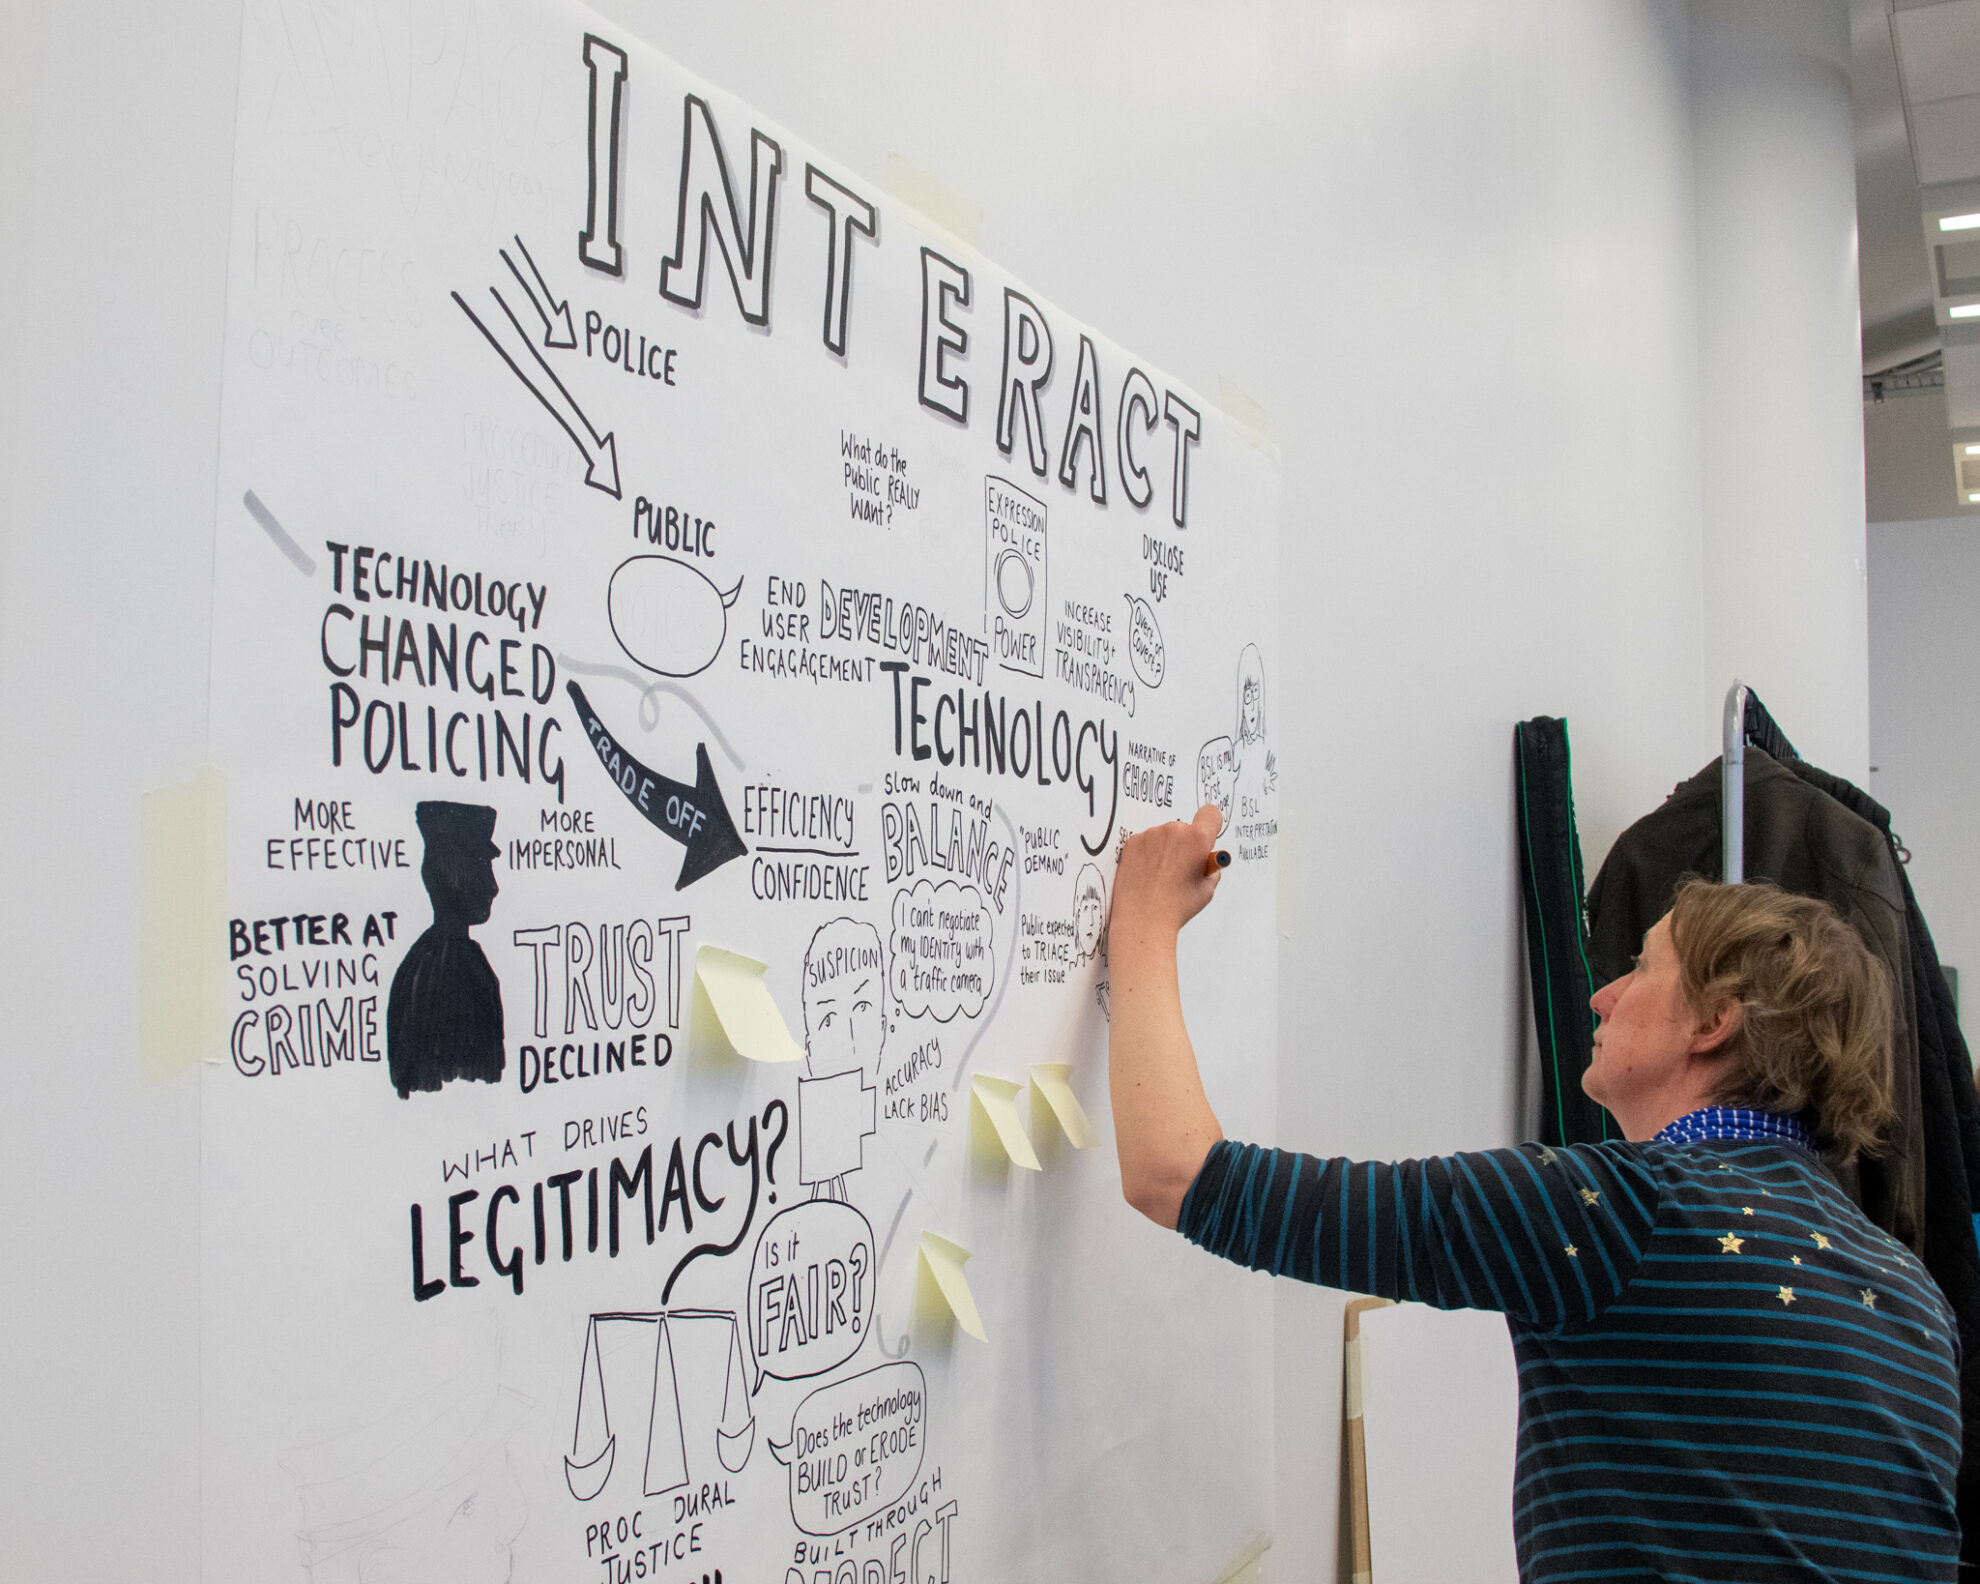 INTERACT
POLICE
PUBLIC
PROCESS
OVER
OUTCOMES
PROCEDURAL
JUSTICE
THEORY
What do the
Public REALLY
Want?
EXPRESSION
POLICE
POWER
DISCLOSE
USE
Overt or
Covert?
INCREASE
VISIBILITY +
TRANSPARENCY
TECHNOLOGY
CHANGED
POLICING
VOICE
END
USER
ENGAGAGEMENT
DEVELOPMENT
TECHNOLOGY
TRADE OFF
MORE
EFFECTIVE
MORE
IMPERSONAL
BETTER AT
SOLVING
CRIME
TRUST
DECLINED
EFFICIENCY
CONFIDENCE
Slow down and
BALANCE
NARRATIVE OF
CHOICE
BSL is my
first
BSL
INTERPRETATION
AVAILABLE
"PUBLIC
DEMAND"
Public expected
to TRIAGE
their issue
I can't negotiate
my IDENTITY with
a traffic camera
SUSPICION
ACCURACY
LACK BIAS
WHAT DRIVES
LEGITIMACY?
IS it
FAIR?
Does the technology
BUILD or ERODE
TRUST?
PROC DURAL
JUSTICE
BUILT THROUGH